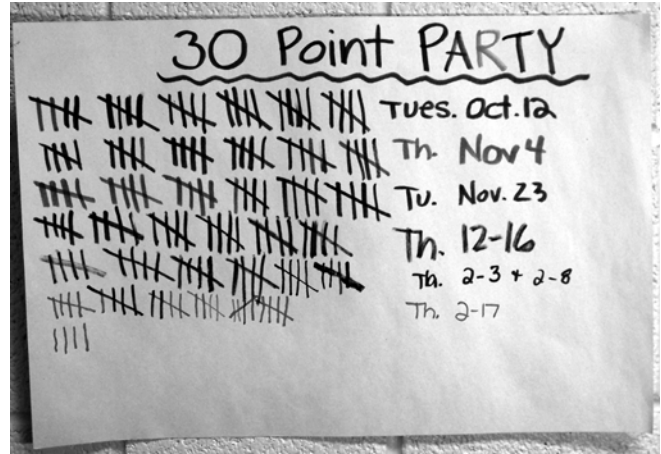 30 Point PARTY
Tues. Oct. 12
Th. Nov 4
Tu. Nov. 23
Th. 12-16
Th. 2-3 + 2-8
Th. 2-17